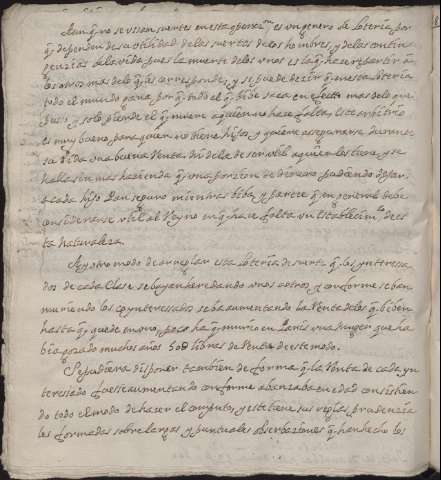 Aunq̃ no se usan suertes en esta operazⁿ es un genero de Loteria, por
q̃ dependen de la utilidad de las suertes de los hombres, y de las contin
de la vida pues la muerte de los unos es la q̃ hace repartir a
los otros mas de lo q̃ les corresponde, y se puede dezir q̃ en esta loteria
todo el mundo gana por q̃ todo el q̃ bibe saca en efecto mas de lo que
puso, y solo pierde el q̃ muere a quien no hace falta, Este arbitrio
es muy bueno para quien no tiene hijos, y quiere asegurarse durante
su vida una buena Renta, sin dexar de ser util a quien los tiene, y se
halla sin mas hazienda q̃ una porzion de dinero pudiendo dejar
a cada hijo Pan seguro mientras biba, y parece q̃ en general debe
considerarse util al Reyno en q̃ hace falta un Establecimᵗᵒ de es
ta naturaleza.
Ay otro modo de arreglar esta Loteria de suerte q̃ los ynteressa
dos de cada Clase se bayan heredando unos a otros, y conforme se ban
muriendo los ynteressados se ba aumentando la Renta de los q̃ biben
hasta q̃ quede en uno, poco ha q̃ murio en Paris una muger que ha
bia gozado muchos años 50@ libras de Renta de este modo.
Se pudiera disponer tambien de forma q̃ la Renta de cada yn
teressado fuesse aumentando conforme abanzaba en edad consistien
do todo el modo de hazer el computo, y este tiene sus reglas prudenzia
les formadas sobre largas, y puntuales obserbaziones q̃ han hecho los